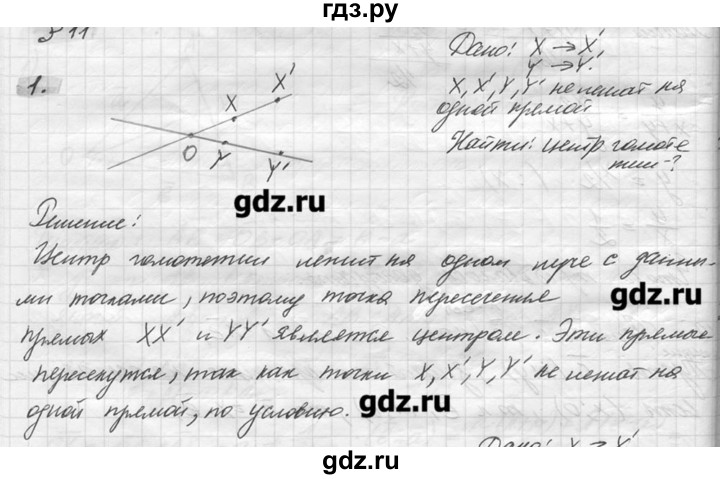 гдз.ру
§ 11
1.
X X'
O Y Y'
Дано: X → X',
Y → Y'.
X, X', Y, Y' не лежат на
одной прямой
Найти: центр гомоте
тии-?
gdz.ru
Решение:
Центр гомотетии лежит на одном луче с данны-
ми точками, поэтому точка пересечения
gdz.ru
прямых XX' и YY' является центром. Эти прямые
пересекутся, так как точки X, X', Y, Y' не лежат на
одной прямой, по условию.
gdz.ru
Дано: X → X'
gdz.ru